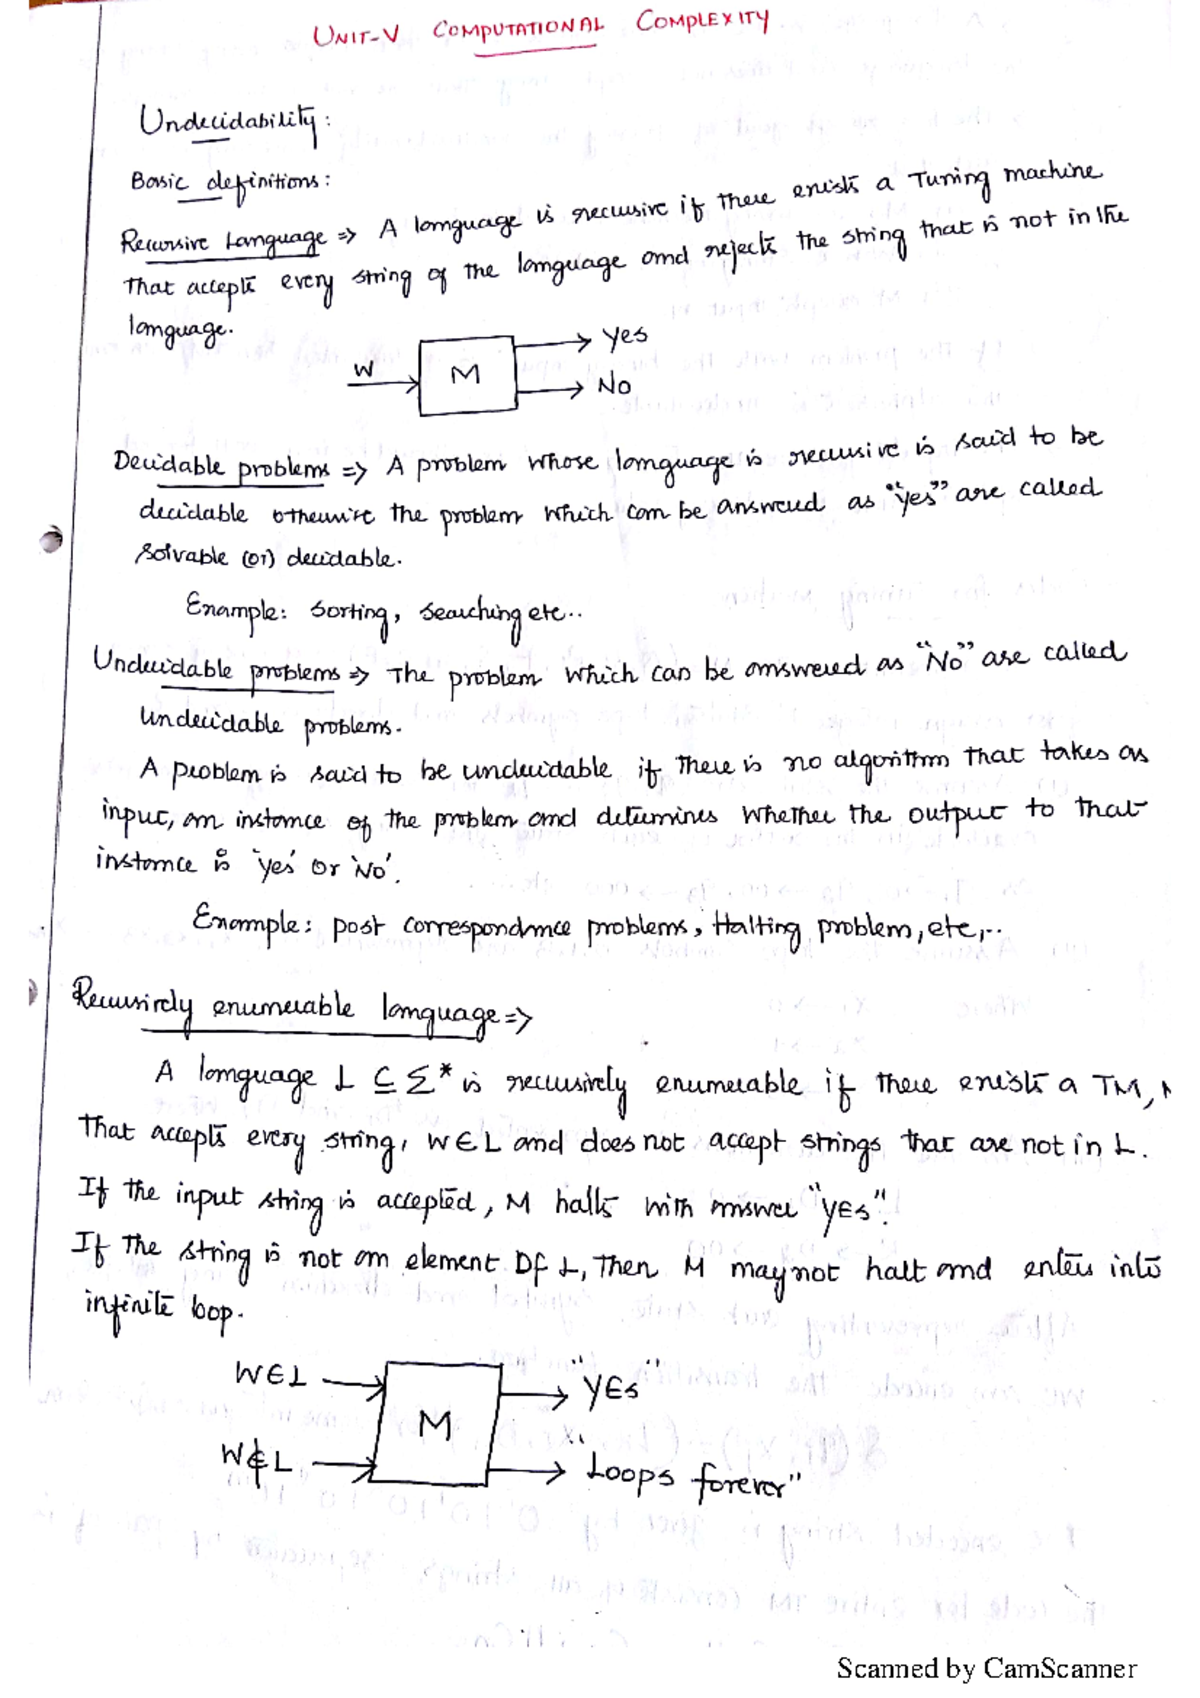 UNIT-V COMPUTATIONAL COMPLEXITY
Undecidability:
Basic definitions:
Recursive Language => A language is recursive if there exists a Turing machine
that accepts every string of the language and rejects the string that is not in the
language.
W
M
Yes
No
Decidable problems => A problem whose language is recursive is said to be
decidable otherwise the problem which can be answered as "yes" are called
solvable (or) decidable.
Example: sorting, searching etc..
Undecidable problems => The problem which can be answered as "No" are called
undecidable problems.
A problem is said to be undecidable if there is no algorithm that takes as
input, an instance of the problem and determines whether the output to that
instance is 'yes' or 'No'.
Example: post correspondence problems, Halting problem, etc,..
Recursively enumerable language =>
A language L ⊆ Σ* is recursively enumerable if there exists a TM, M
that accepts every string, W∈L and does not accept strings that are not in L.
If the input string is accepted, M halts with answer "YES".
If the string is not an element of L, then M may not halt and enters into
infinite loop.
W∈L
M
"YES"
W∉L
"Loops forever"
Scanned by CamScanner